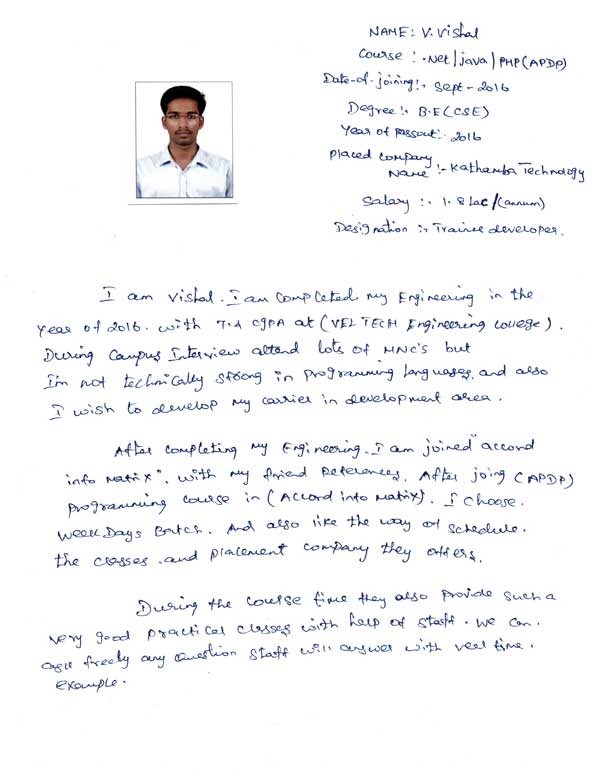 NAME: V. Vishal
Course :- .Net/java/PHP(APDP)
Date-of-joining:- Sept-2016
Degree:- B.E(CSE)
Year of Passout:- 2016
Placed Company
Name :- Kathamba Technology
Salary :- 1.8 Lac/(annum)
Designation :- Trainee developer.
I am vishal. I am completed my Engineering in the
year of 2016. with 7.4 CGPA at (VEL TECH Engineering college).
During Campus Interview attend lots of MNC's but
I'm not technically strong in programming languages, and also
I wish to develop my carrier in development area.
After completing my Engineering. I am joined "accord
info Matrix". with my friend References. After joing (APDP)
programming course in (Accord info Matrix). I choose.
Week Days Batch. And also like the way of schedule.
the classes. and placement company they offers.
During the course time they also provide such a
very good practical classes with help of staff. we can.
ask freely any question staff will answer with reel time.
example.